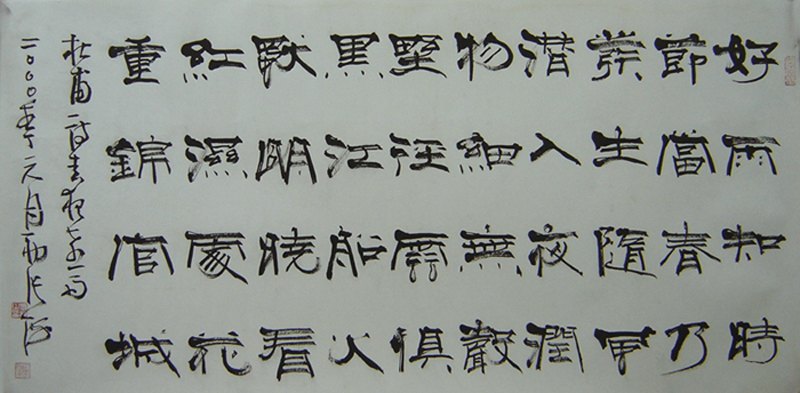 好雨知時
節當春乃
發生隨風
潛入夜潤
物細無聲
野徑雲俱
黑江船火
獨明曉看
紅濕處花
重錦官城
杜甫詩春夜喜雨
二〇〇〇年元月